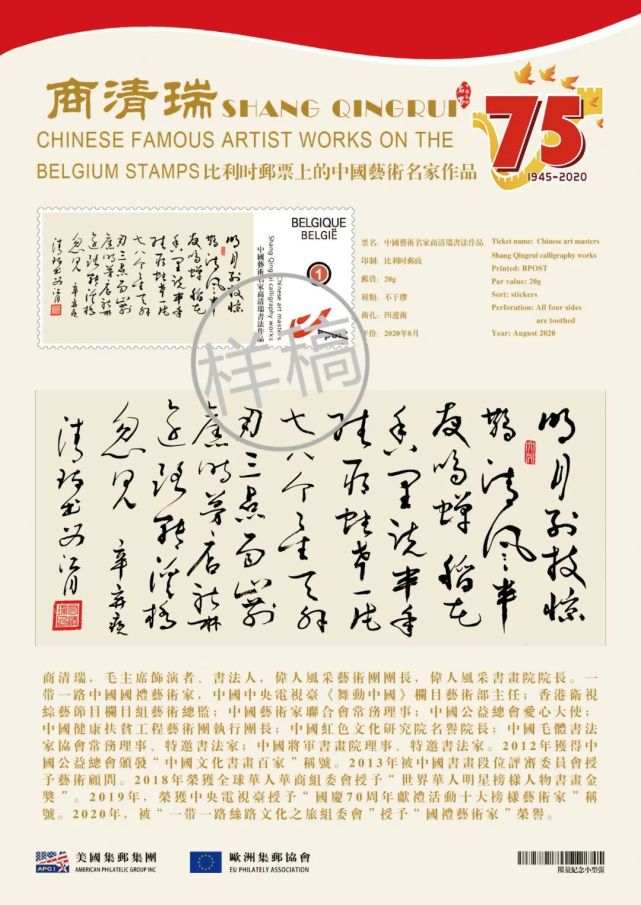 商清瑞 SHANG QINGRUI
CHINESE FAMOUS ARTIST WORKS ON THE
BELGIUM STAMPS 比利时郵票上的中國藝術名家作品
75
1945-2020
BELGIQUE
BELGIË
1
Chinese art masters
Shang Qingrui calligraphy works
中國藝術名家商清瑞書法作品
票名：中國藝術名家商清瑞書法作品
印制：比利時郵政
郵資：20g
種類：不干膠
齒孔：四邊齒
年份：2020年8月
Ticket name: Chinese art masters
Shang Qingrui calligraphy works
Printed: BPOST
Par value: 20g
Sort: stickers
Perforation: All four sides
are toothed
Year: August 2020
样稿
明月别枝惊
鹊清风半
夜鸣蝉稻花
香里说丰年
听取蛙声一片
七八个星天外
雨三点雨山前
旧时茅店社林
边路转溪桥
忽见 辛弃疾
清瑞书西江月
商清瑞，毛主席飾演者、書法人，偉人風采藝術團團長，偉人風采書畫院院長。一
帶一路中國國禮藝術家，中國中央電視臺《舞動中國》欄目藝術部主任；香港衛視
綜藝節目欄目組藝術總監；中國藝術家聯合會常務理事；中國公益總會愛心大使；
中國健康扶貧工程藝術團執行團長；中國紅色文化研究院名譽院長；中國毛體書法
家協會常務理事、特邀書法家；中國將軍書畫院理事、特邀書法家。2012年獲得中
國公益總會頒發“中國文化書畫百家”稱號。2013年被中國書畫段位評審委員會授
予藝術顧問。2018年榮獲全球華人華商組委會授予“世界華人明星榜樣人物書畫金
獎”。2019年，榮獲中央電視臺授予“國慶70周年獻禮活動十大榜樣藝術家”稱
號。2020年，被“一帶一路絲路文化之旅組委會”授予“國禮藝術家”榮譽。
APGI
美國集郵集團
AMERICAN PHILATELIC GROUP INC
歐洲集郵協會
EU PHILATELY ASSOCIATION
限量紀念小型張